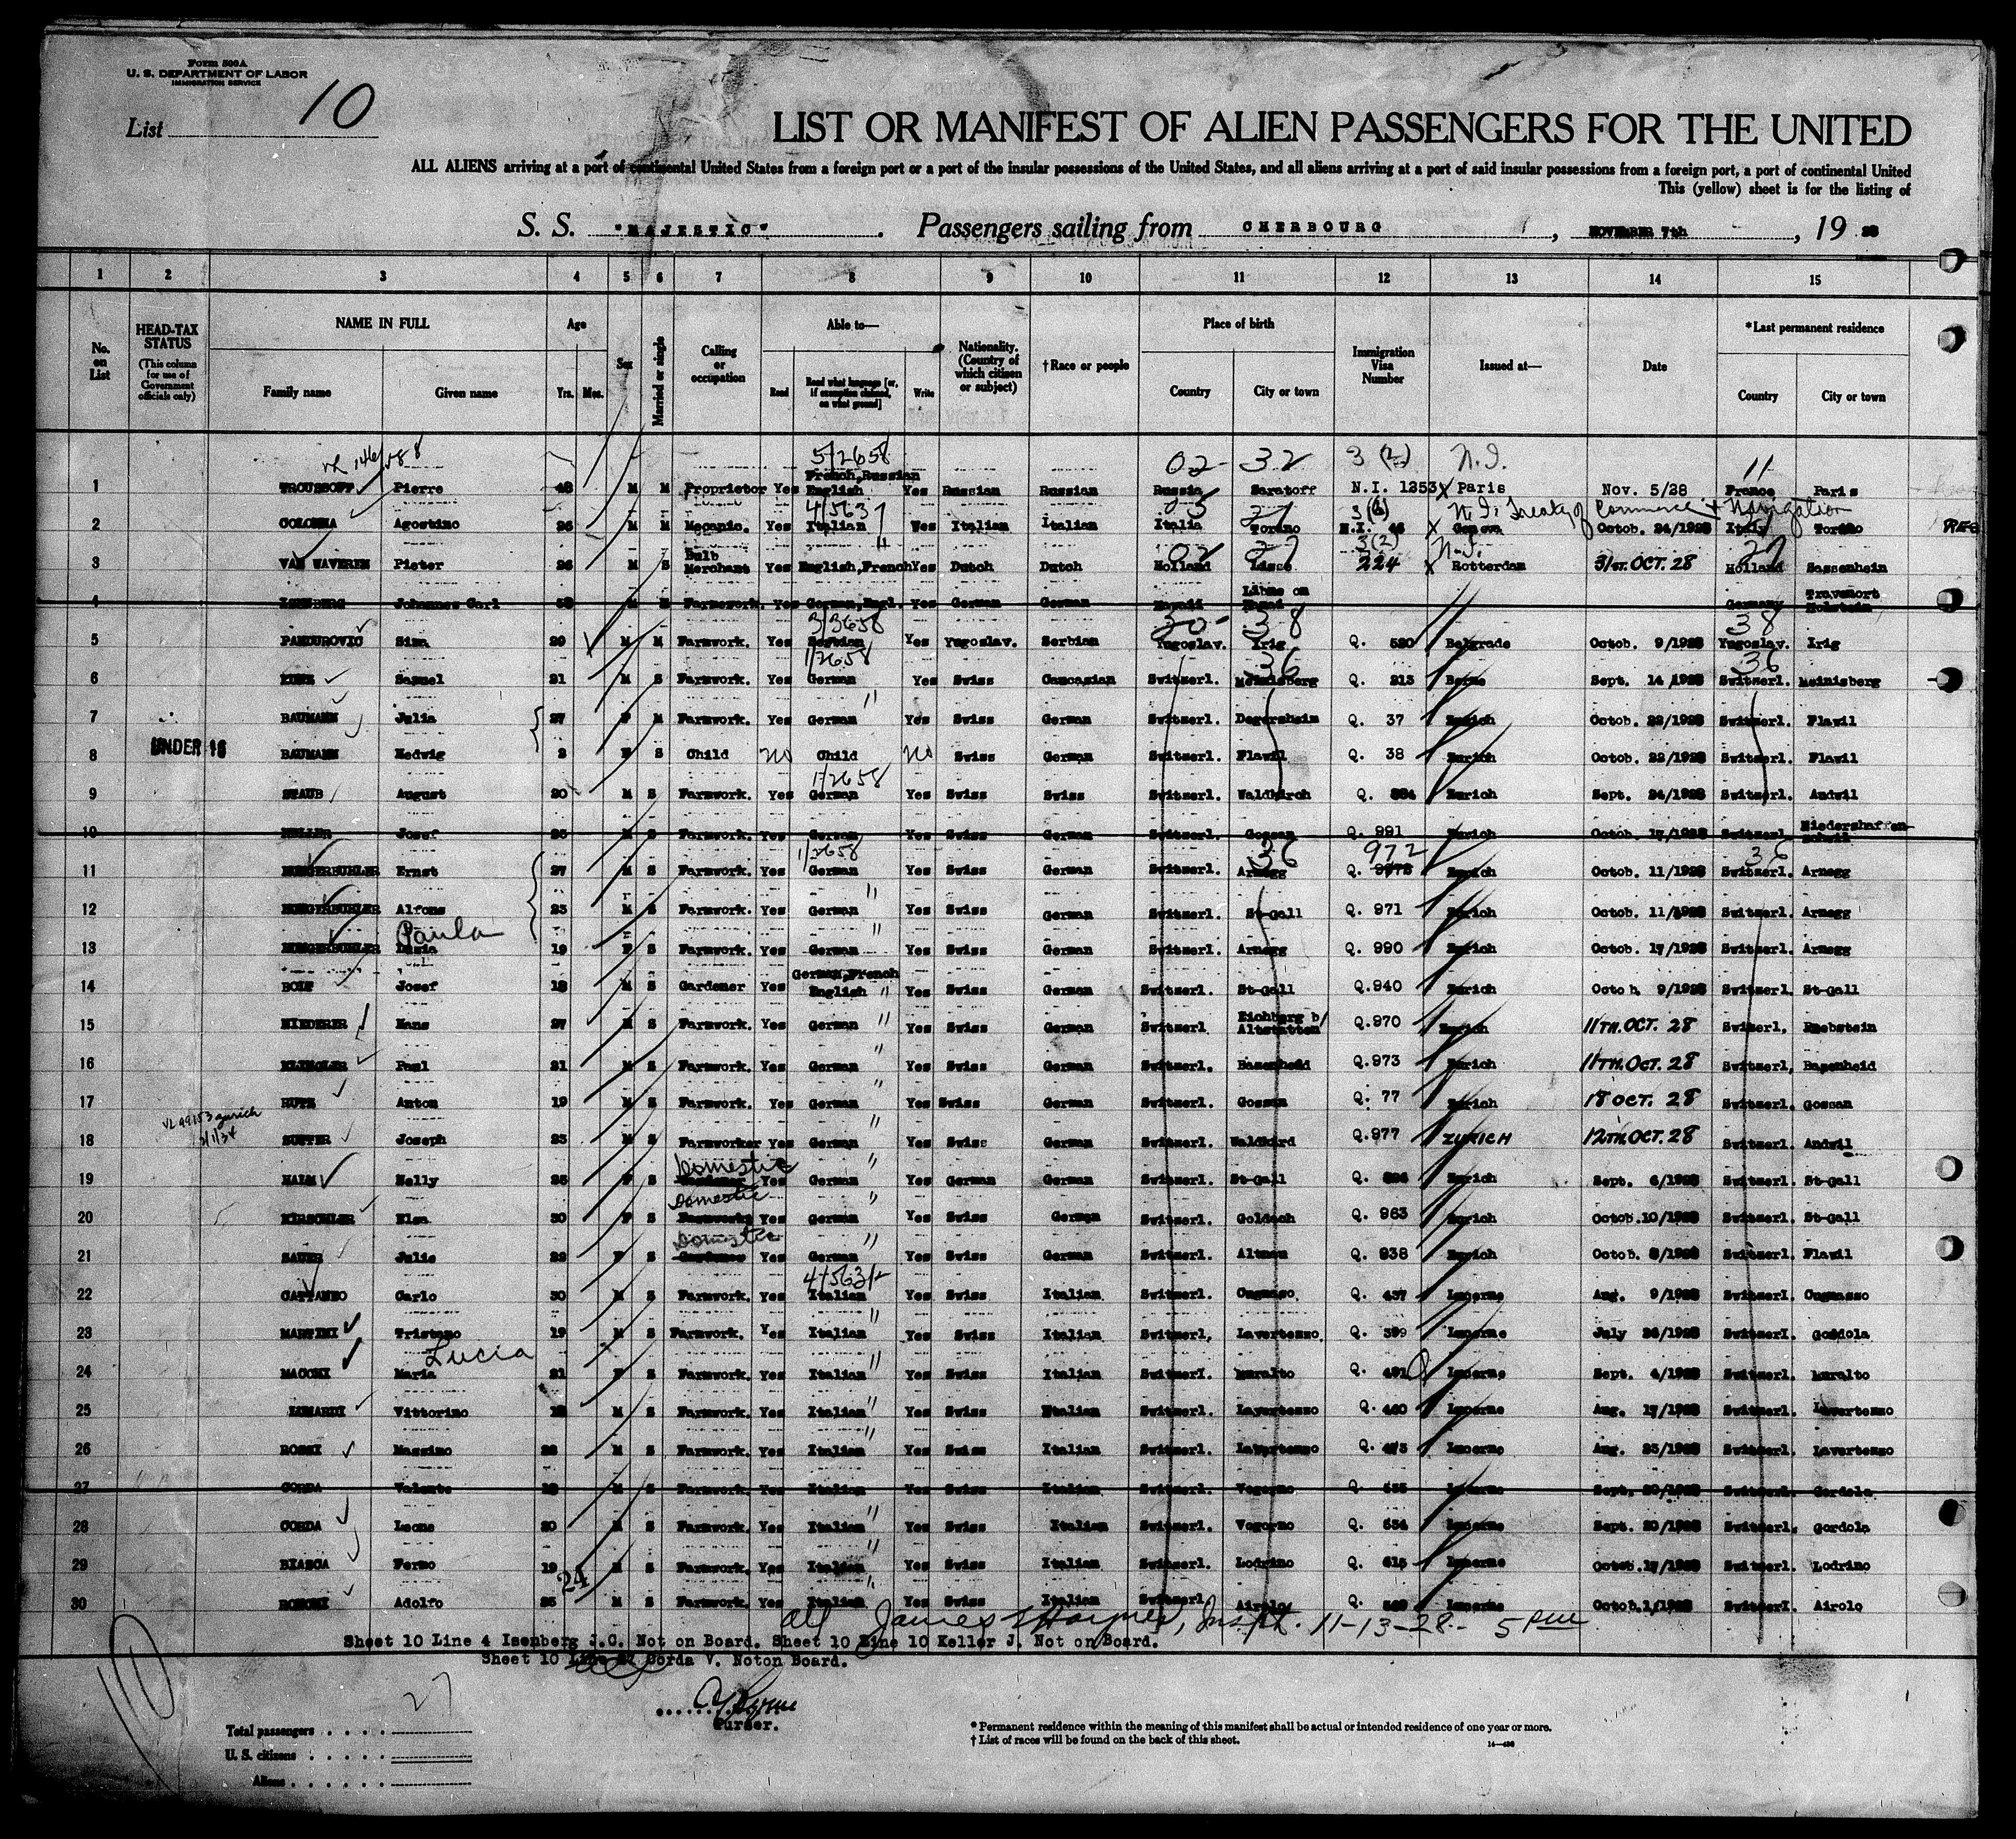 Form 500A
U. S. DEPARTMENT OF LABOR
IMMIGRATION SERVICE
List 10
LIST OR MANIFEST OF ALIEN PASSENGERS FOR THE UNITED
ALL ALIENS arriving at a port of continental United States from a foreign port or a port of the insular possessions of the United States, and all aliens arriving at a port of said insular possessions from a foreign port, a port of continental United
This (yellow) sheet is for the listing of
S. S. "MAJESTIC". Passengers sailing from CHERBOURG, NOVEMBER 7th, 19 28
1 2 3 4 5 6 7 8 9 10 11 12 13 14 15
No. on List
HEAD-TAX STATUS (This column for use of Government officials only)
NAME IN FULL Family name Given name
Age Yrs. Mos.
Sex
Married or single
Calling or occupation
Able to— Read Read what language [or, if exemption claimed, on what ground] Write
Nationality. (Country of which citizen or subject)
†Race or people
Place of birth Country City or town
Immigration Visa Number
Issued at—
Date
*Last permanent residence Country City or town
5/2658 02 32 3 (2) N.I. 11
1 TROUSSOFF Pierre 48 M M Proprietor Yes French,Russian English Yes Russian Russian Russia Saratoff N.I. 1353 Paris Nov. 5/28 France Paris
4/563 3(6) N.I. Treaty of Commerce + Navigation
2 COLOMBA Agostino 26 M M Mecanic. Yes Italian Yes Italian Italian Italia Torino N.I. Geneva Octob. 24/1928 Italy Torino
" 02 27 3(2) N.I. 27
3 VAN WAVEREN Pieter 26 M S Bulb Merchant Yes English,French Yes Dutch Dutch Holland Lisse 224 Rotterdam 31st. OCT. 28 Holland Sassenheim
4 ISENBERG Johannes Carl M Farmwork. Yes German,Engl. Yes German German Hawaii Germany Travemort Holstein
3/3658 38 38
5 PANDUROVIC Sima 29 M M Farmwork. Yes Serbian Yes Yugoslav. Serbian Yugoslav. Irig Q. 520 Belgrade Octob. 9/1928 Yugoslav. Irig
1/2658 36 36
6 Samuel 21 M S Farmwork. Yes German Yes Swiss Caucasian Switzerl. Meinisberg Q. 213 Berne Sept. 14/1928 Switzerl. Meinisberg
7 BAUMANN Julia 27 F M Farmwork. Yes German " Yes Swiss German Switzerl. Degersheim Q. 37 Zurich Octob. 22/1928 Switzerl. Flawil
UNDER 16
8 BAUMANN Hedwig F S Child No Child No Swiss German Switzerl. Flawil Q. 38 Zurich Octob. 22/1928 Switzerl. Flawil
1/2658
9 STAUB August 20 M S Farmwork. Yes German Yes Swiss Swiss Switzerl. Waldkirch Q. 884 Zurich Sept. 24/1928 Switzerl. Andwil
10 KELLER Josef M S Farmwork. Yes German Yes Swiss German Switzerl. Gossau Q. 991 Zurich Octob. 17/1928 Switzerl.
1/2658 36 972 36
11 HUNGERBUHLER Ernst 27 M S Farmwork. Yes German Yes Swiss German Switzerl. Arnegg Q. Zurich Octob. 11/1928 Switzerl. Arnegg
12 HUNGERBUHLER Alfons 23 M S Farmwork. Yes German " Yes Swiss German Switzerl. St-Gall Q. 971 Zurich Octob. 11/1928 Switzerl. Arnegg
Paula
13 HUNGERBUHLER 19 F S Farmwork. Yes German " Yes Swiss German Switzerl. Arnegg Q. 990 Zurich Octob. 17/1928 Switzerl. Arnegg
14 Josef 18 M S Gardener Yes German,French English " Yes Swiss German Switzerl. St-Gall Q.940 Zurich Octob. 9/1928 Switzerl. St-Gall
15 NIEDERER Hans 27 M S Farmwork. Yes German " Yes Swiss German Switzerl Eichberg b/ Altstatten Q.970 Zurich 11TH. OCT. 28 Switzerl. Rebstein
16 KLINGLER Paul 21 M S Farmwork. Yes German " Yes Swiss German Switzerl. Bazenheid Q.973 Zurich 11TH. OCT. 28 Switzerl. Bazenheid
17 RUTZ Anton 19 M S Farmwork. Yes German " Yes Swiss German Switzerl. Gossau Q. 77 Zurich 18 OCT. 28 Switzerl. Gossau
3/1/34
18 SUTTER Joseph 23 M S Farmworker Yes German " Yes Swiss German Switzerl. Q.977 ZURICH 12TH. OCT. 28 Switzerl. Andwil
Domestic
19 HALM Nelly F S Gardener Yes German " Yes German German Switzerl. St-Gall Q. Zurich Sept. 6/1928 Switzerl. St-Gall
Domestic
20 HIRSCHLER Elsa 30 F S Farmwork. Yes German " Yes Swiss German Switzerl. Goldach Q. 963 Zurich Octob.10/1928 Switzerl. St-Gall
Domestic
21 Julie F S Gardener Yes German " Yes Swiss German Switzerl. Altnau Q. 938 Zurich Octob. 8/1928 Switzerl. Flawil
4/563/2
22 CATTANEO Carlo 30 M S Farmwork. Yes Italian Yes Swiss Italian Switzerl. Cugnasco Q. 437 Lucerne Aug. 9/1928 Switzerl. Cugnasco
23 MARTINI Tristano 19 M S Farmwork. Yes Italian " Yes Swiss Italian Switzerl. Lavertezzo Q. 399 Lucerne July 26/1928 Switzerl. Gordola
Lucia
24 MACCHI Maria 21 F S Farmwork. Yes Italian " Yes Swiss Italian Switzerl. Muralto Q. 491 Lucerne Sept. 4/1928 Switzerl. Muralto
25 LUNARDI Vittorino M S Farmwork. Yes Italian " Yes Swiss Italian Switzerl. Lavertezzo Q. 460 Lucerne Aug. 17/1928 Switzerl. Lavertezzo
26 ROSSI Massimo M S Farmwork. Yes Italian " Yes Swiss Italian Switzerl. Lavertezzo Q. 473 Lucerne Aug. 23/1928 Switzerl. Lavertezzo
27 CORDA Valente M S Farmwork. Yes Italian Yes Swiss Italian Switzerl. Vogorno Q. 535 Lucerne Sept. 20/1928 Switzerl. Gordola
28 CORDA Leone 20 M S Farmwork. Yes Italian " Yes Swiss Italian Switzerl. Vogorno Q. 534 Lucerne Sept. 20/1928 Switzerl. Gordola
29 BIASCA Fermo 19 M S Farmwork. Yes Italian " Yes Swiss Italian Switzerl. Lodrino Q. 615 Lucerne Octob.17/1928 Switzerl. Lodrino
24
30 Adolfo M S Farmwork. Yes Italian " Yes Swiss Italian Switzerl Airolo Q. Lucerne Octob.1/1928 Switzerl. Airolo
all James Haynes, Inspt. 11-13-28- 5 pm
Sheet 10 Line 4 Isenberg J.C. Not on Board. Sheet 10 Line 10 Keller J. Not on Board.
Sheet 10 Line 27 Corda V. Noton Board.
10
27
Purser.
Total passengers
U. S. citizens
Aliens
* Permanent residence within the meaning of this manifest shall be actual or intended residence of one year or more.
† List of races will be found on the back of this sheet.